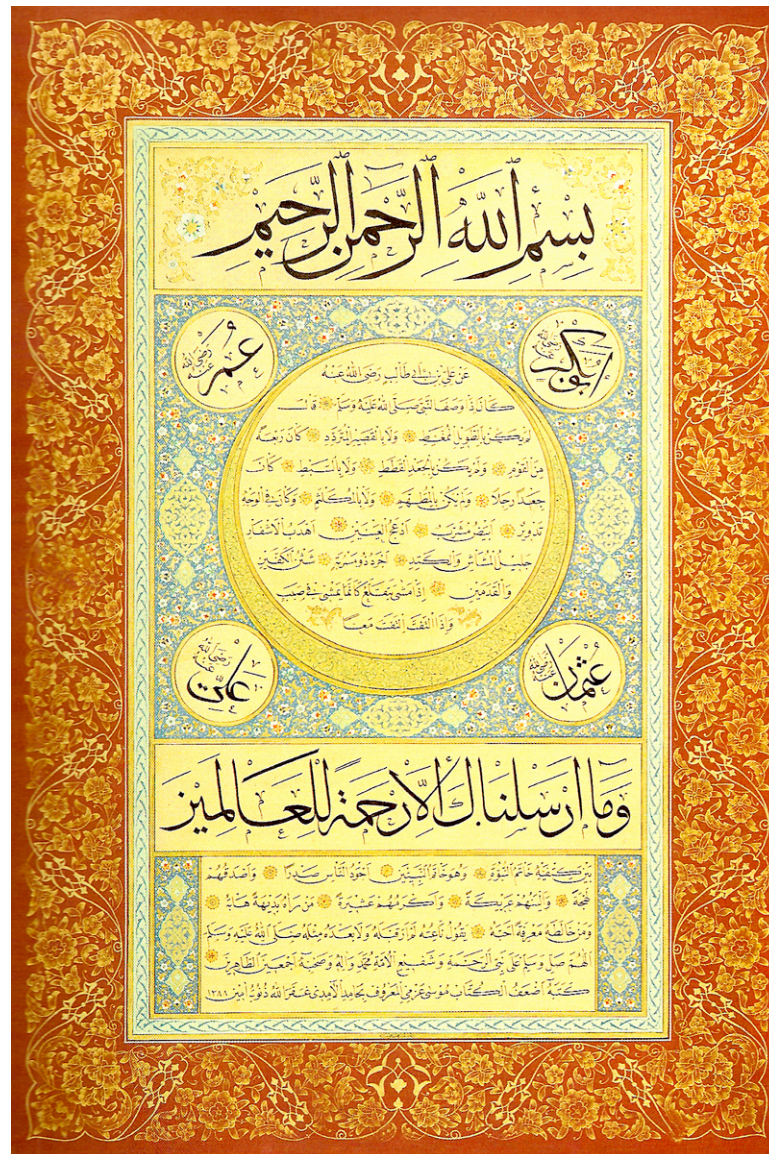 بسم الله الرحمن الرحيم
ابوبكر رضي الله عنه
عمر رضي الله عنه
عن علي بن ابي طالب رضي الله عنه
كان اذا وصف النبي صلى الله عليه وسلم قال
لم يكن بالطويل الممغط ولا بالقصير المتردد كان ربعة
من القوم ولم يكن بالجعد القطط ولا بالسبط كان
جعدا رجلا ولم يكن بالمطهم ولا بالمكلثم وكان في الوجه
تدوير ابيض مشرب ادعج العينين اهدب الاشفار
جليل المشاش والكتد اجرد ذو مسربة شثن الكفين
والقدمين اذا مشى يتقلع كانما يمشي في صبب
واذا التفت التفت معا
عثمان رضي الله عنه
علي رضي الله عنه
وما ارسلناك الا رحمة للعالمين
بين كتفيه خاتم النبوة وهو خاتم النبيين اجود الناس صدرا واصدقهم
لهجة والينهم عريكة واكرمهم عشيرة من رآه بديهة هابه
ومن خالطه معرفة احبه يقول ناعته لم ار قبله ولا بعده مثله صلى الله عليه وسلم
اللهم صل وسلم على نبي الرحمة وشفيع الامة محمد وآله وصحبه اجمعين الطاهرين
كتبه اضعف الكتاب موسى عزمي المعروف بحامد الآمدي غفر الله ذنوبه آمين